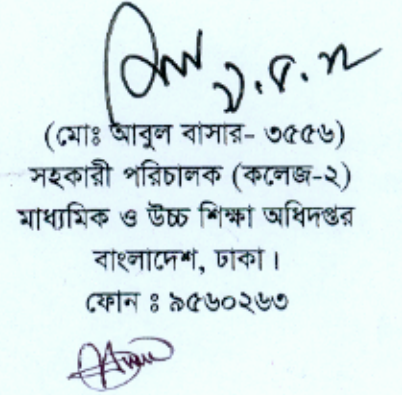 (মোঃ আবুল বাসার- ৩৫৫৬)
সহকারী পরিচালক (কলেজ-২)
মাধ্যমিক ও উচ্চ শিক্ষা অধিদপ্তর
বাংলাদেশ, ঢাকা।
ফোন ঃ ৯৫৬০২৬৩